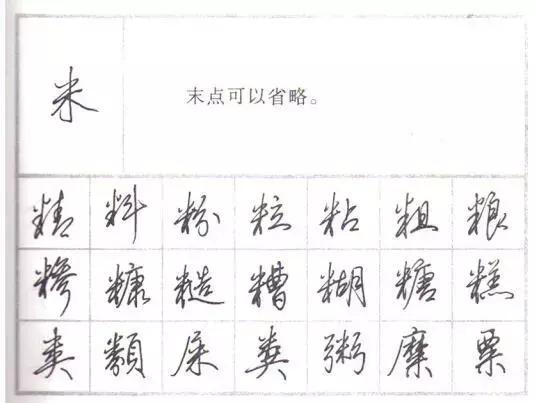 米
末点可以省略。
精 料 粉 粒 粘 粗 粮
糁 糠 糙 糟 糊 糖 糕
类 類 屎 粪 粥 糜 粟